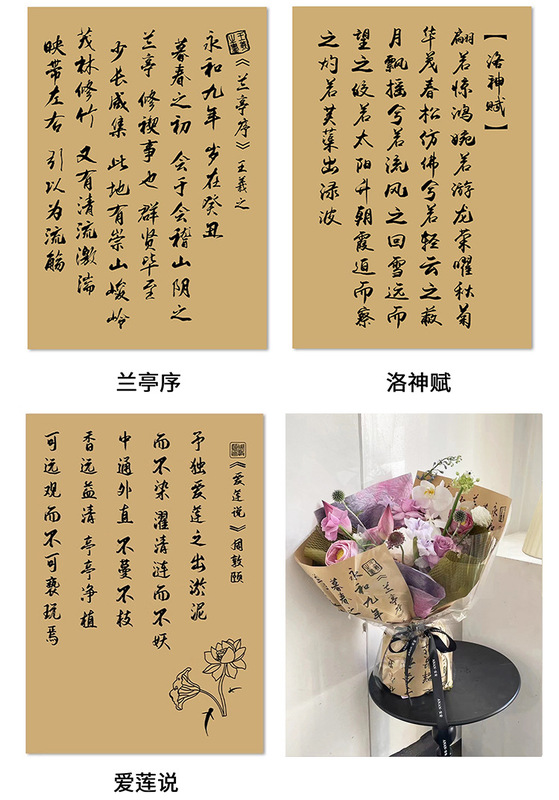 《兰亭序》王羲之
永和九年 岁在癸丑
暮春之初 会于会稽山阴之
兰亭 修禊事也 群贤毕至
少长咸集 此地有崇山峻岭
茂林修竹 又有清流激湍
映带左右 引以为流觞
兰亭序
【洛神赋】
翩若惊鸿婉若游龙荣曜秋菊
华茂春松仿佛兮若轻云之蔽
月飘摇兮若流风之回雪远而
望之皎若太阳升朝霞迫而察
之灼若芙蕖出渌波
洛神赋
《爱莲说》周敦颐
予独爱莲之出淤泥
而不染 濯清涟而不妖
中通外直 不蔓不枝
香远益清 亭亭净植
可远观而不可亵玩焉
爱莲说
永和九年
暮春之